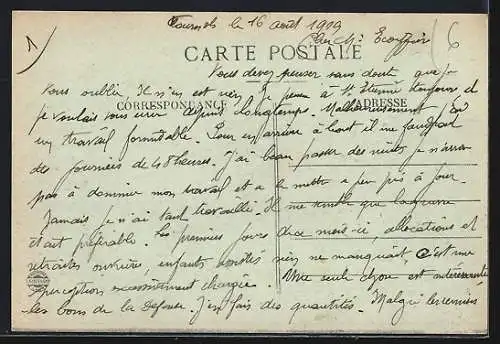 1)
Tournols le 16 août 1919
Cher Mr. Ecoiffier
6
CARTE POSTALE
Vous devez penser sans doute que je
vous oublie. Il n'en est rien. Je pense à St Etienne toujours et
CORRESPONDANCE
ADRESSE
je voulais vous écrire depuis longtemps. Malheureusement j'ai
un travail formidable. Pour en arriver à bout il me faudrait
des journées de 48 heures. J'ai beau passer des nuits je n'arrive
pas à dominer mon travail et à le mettre à peu près à jour.
Jamais je n'ai tant travaillé. Il me semble que
était préférable. Les premiers jours de ce mois-ci, allocations et
retraites ouvrière, enfants assistés rien ne manquait. C'est une
perception excessivement chargée. Une seule chose est intéressante
les bons de la Défense. J'en fais des quantités. Malgré